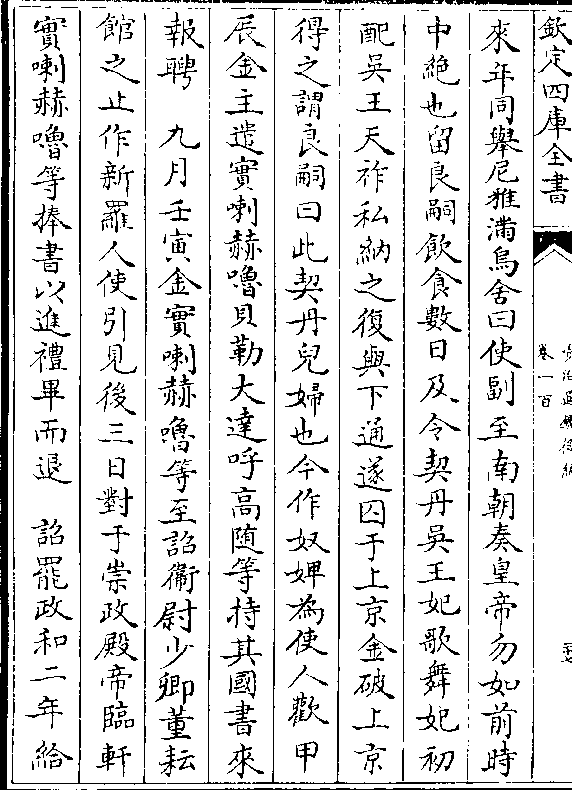 欽定四庫全書
資治通鑑後編
卷一百
來年同舉尼雅滿烏舍曰使副至南朝奏皇帝勿如前時
中絶也留良嗣飲食數日及令契丹吳王妃歌舞妃初
配吳王天祚私納之復與下通遂囚于上京金破上京
得之謂良嗣曰此契丹兒婦也今作奴婢為使人歡甲
辰金主遣實喇赫嚕貝勒大達呼高随等持其國書來
報聘　九月壬寅金實喇赫嚕等至詔衞尉少卿董耘
館之止作新羅人使引見後三日對于崇政殿帝臨軒
實喇赫嚕等捧書以進禮畢而退　詔罷政和二年給